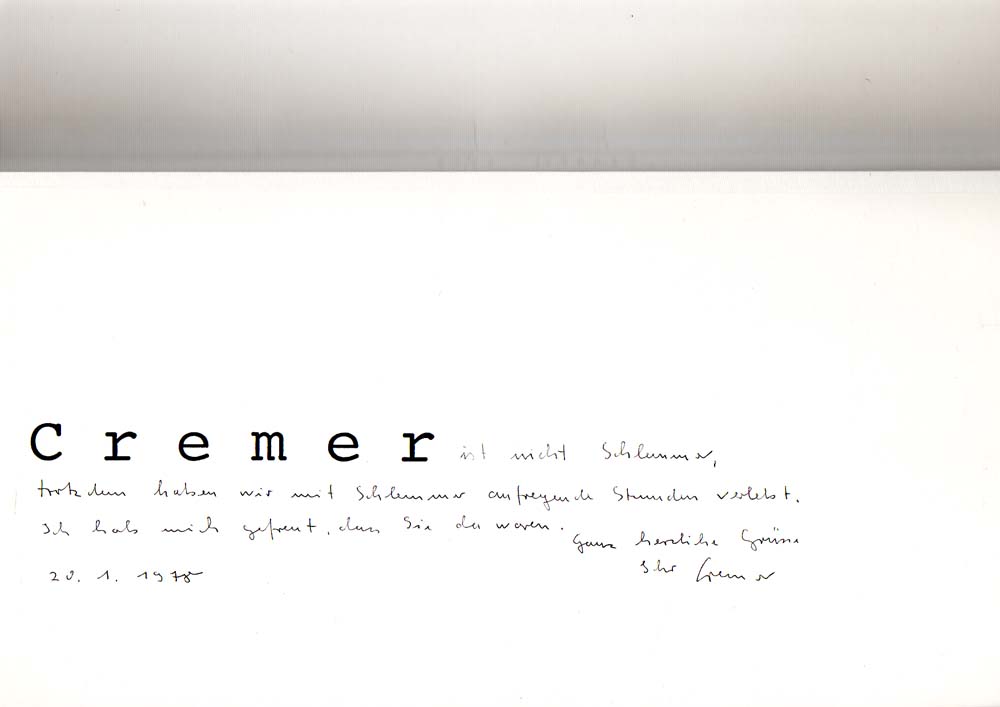 Cremer ist nicht Schlemmer,
trotzdem haben wir mit Schlemmer aufregende Stunden verlebt.
Ich hab mich gefreut, dass Sie da waren.
Ganz herzliche Grüsse
Ihr Cremer
20. 1. 1978